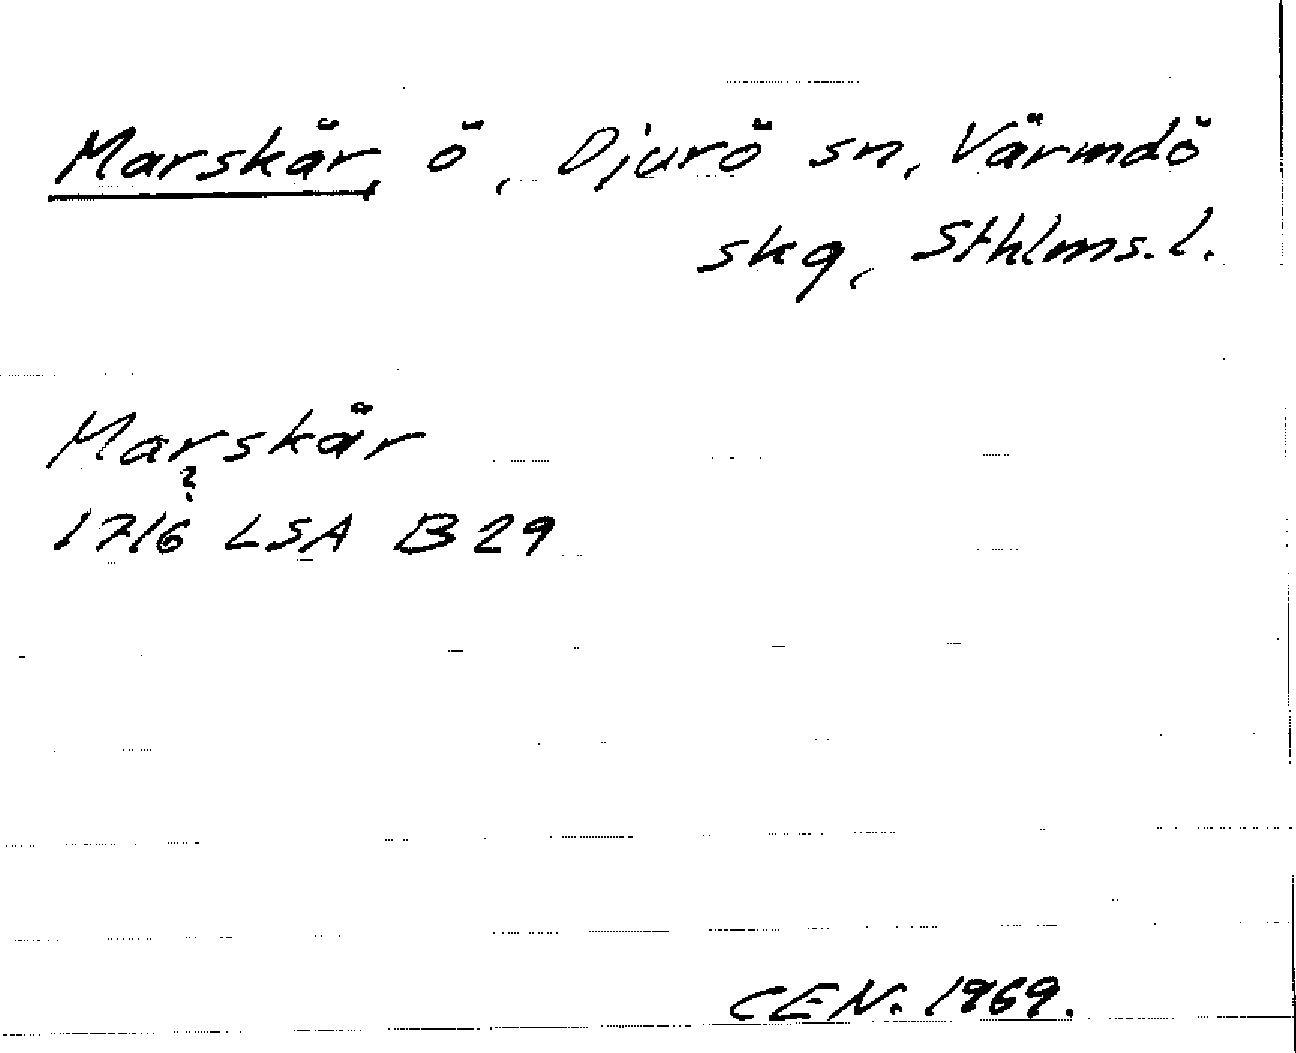 Marskär, ö, Djurö sn, Värmdö
skg, Sthlms. l.
Marskär
?
1716 LSA B 29
CEN. 1969.